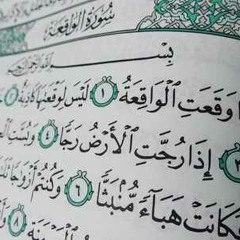 سُورَةُ الوَاقِعَةِ
بِسۡ
وَقَعَتِ ٱلْوَاقِعَةُ ١ لَيْسَ لِوَقْعَتِهَا كَاذِبَةٌ
٣ إِذَا رُجَّتِ ٱلْأَرْضُ رَجًّا ٤ وَبُسَّتِ
فَكَانَتْ هَبَآءً مُّنۢبَثًّا ٦ وَكُنتُمْ أَزْوَٰجًا
٨